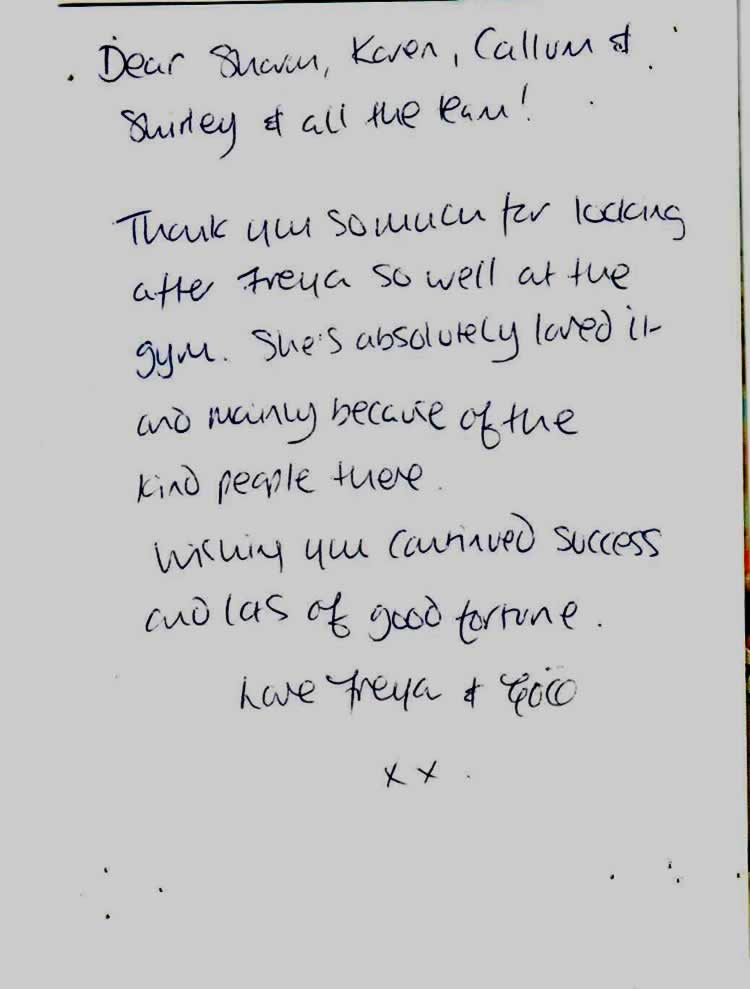 Dear Sharon, Karen, Callum &
Shirley & all the team!
Thank you so much for looking
after Freya so well at the
gym. She's absolutely loved it
and mainly because of the
kind people there.
Wishing you continued success
and lots of good fortune.
Love Freya &
x x